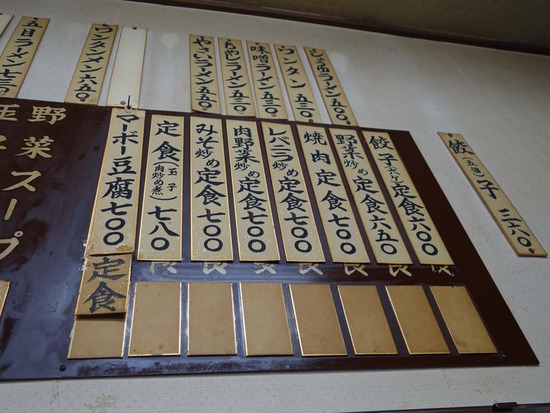 餃子（五個）
ワンタン五三〇
味噌ラーメン五三〇
もやしラーメン五三〇
やさいラーメン五五〇
ワンタンメン六五〇
五目ラーメン七三〇
餃子定食六〇〇
野菜炒め定食六五〇
焼肉定食七〇〇
レバニラ炒め定食七〇〇
肉野菜炒め定食七〇〇
みそ炒め定食七〇〇
定食（玉子肉炒め煮）七八〇
マーボー豆腐七〇〇
定食
野菜スープ
玉子